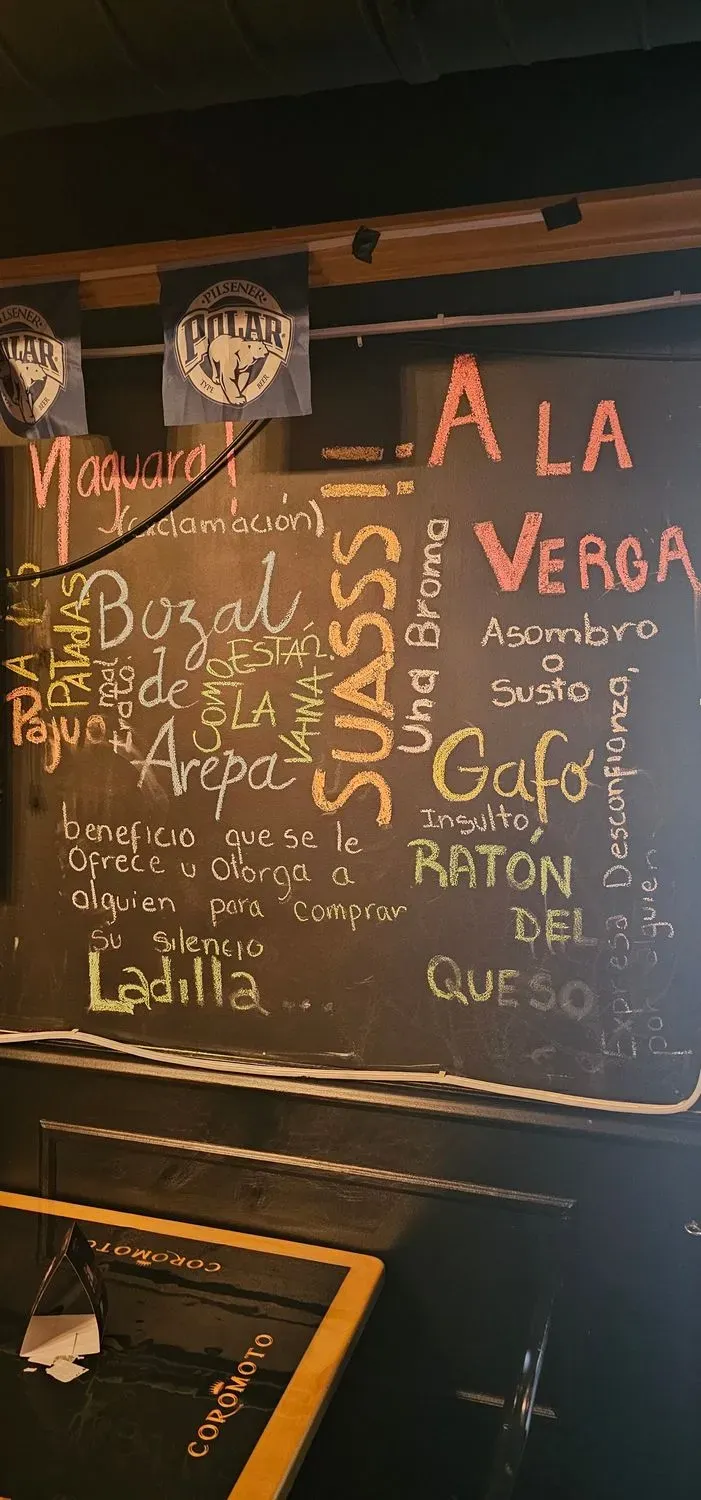 PILSENER
POLAR
TYPE BEER
ILSENER
LAR
BEER
Naguara!
(exclamación)
A LAS
PATADAS
mal
trato
Pajuo
Bozal
de
Arepa
COMO ESTÁ
LA
VAINA
beneficio que se le
Ofrece u Otorga a
alguien para comprar
su silencio
Ladilla...
SUASSS!!
Una Broma
A LA
VERGA
Asombro
o
Susto
Gafo
Insulto
RATÓN
DEL
QUESO
Expresa Desconfianza,
por alguien
COROMOTO
COROMOTO